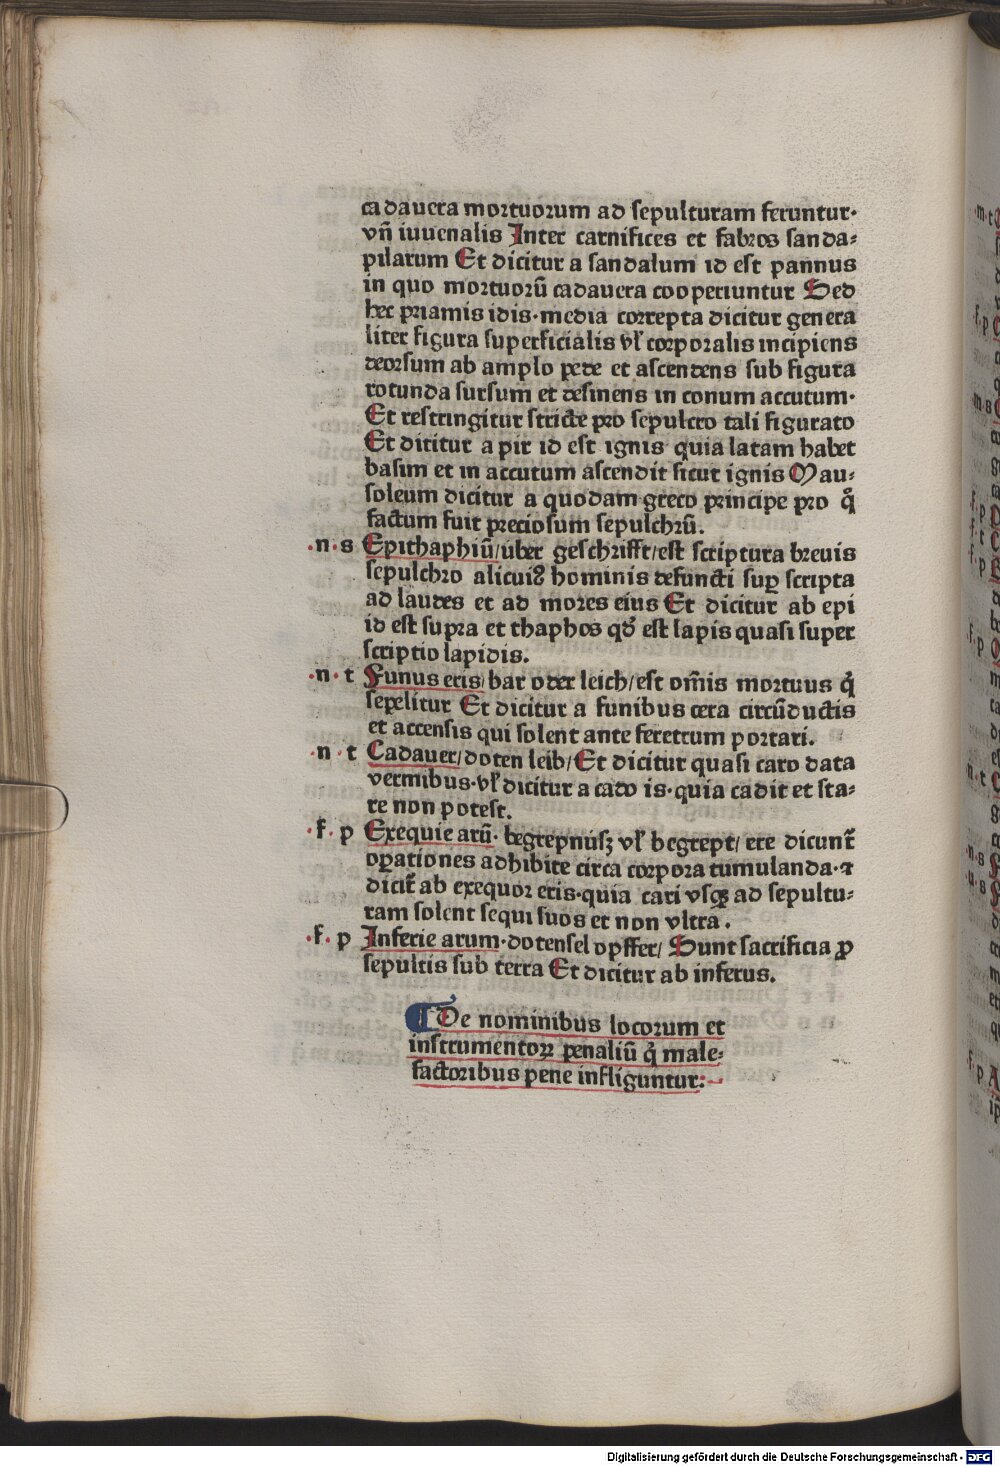 cadauera mortuorum ad sepulturam feruntur·
vñ iuuenalis Inter carnifices et fabros sanda⸗
pilarum Et dicitur a sandalum id est pannus
in quo mortuorū cadauera cooperiuntur Sed
hec priamis idis·media correpta dicitur genera
liter figura superficialis vl̕ corporalis incipiens
deorsum ab amplo pede et ascendens sub figura
rotunda sursum et desinens in conum accutum·
Et restringitur stricte pro sepulcro tali figurato
Et dicitur a pir id est ignis quia latam habet
basim et in accutum ascendit sicut ignis Mau⸗
soleum dicitur a quodam greco principe pro q̄
factum fuit preciosum sepulchrū.
·n·s Epithaphiū/über geschrifft/est scriptura breuis
sepulchro alicuiꝰ hominis defuncti suꝑ scripta
ad laudes et ad mores eius Et dicitur ab epi
id est supra et thaphos qď est lapis quasi super
scriptio lapidis.
·n·t Funus eris/bar oder leich/est om̄is mortuus q̄
sepelitur Et dicitur a funibus cera circūductis
et accensis qui solent ante feretrum portari.
·n·t Cadauer/doten leib/Et dicitur quasi caro data
vermibus·vl̕ dicitur a cado is·quia cadit et sta⸗
re non potest.
·f·p Exequie arū·begrepnusz vl̕ begrept/ere dicunt̄
oꝑationes adhibite circa corpora tumulanda·⁊
dicit̄ ab exequor eris·quia cari vsqꝫ ad sepultu⸗
ram solent sequi suos et non vltra.
·f·p Inferie arum·dotensel opffer/Sunt sacrificia ꝓ
sepultis sub terra Et dicitur ab inferus.
De nominibus locorum et
instrumentoꝝ penaliū q̄ male⸗
factoribus pene infliguntur:
Digitalisierung gefördert durch die Deutsche Forschungsgemeinschaft - DFG